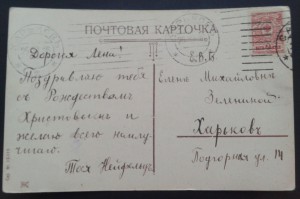 ПОЧТОВАЯ КАРТОЧКА
Дорогая Лена!
Поздравляю тебя
съ Рождествомъ
Христовымъ и
желаю всего наилу-
чшаго.
Тося
Елена Михайловна
Зелениной
Харьковъ
Подгорная ул.